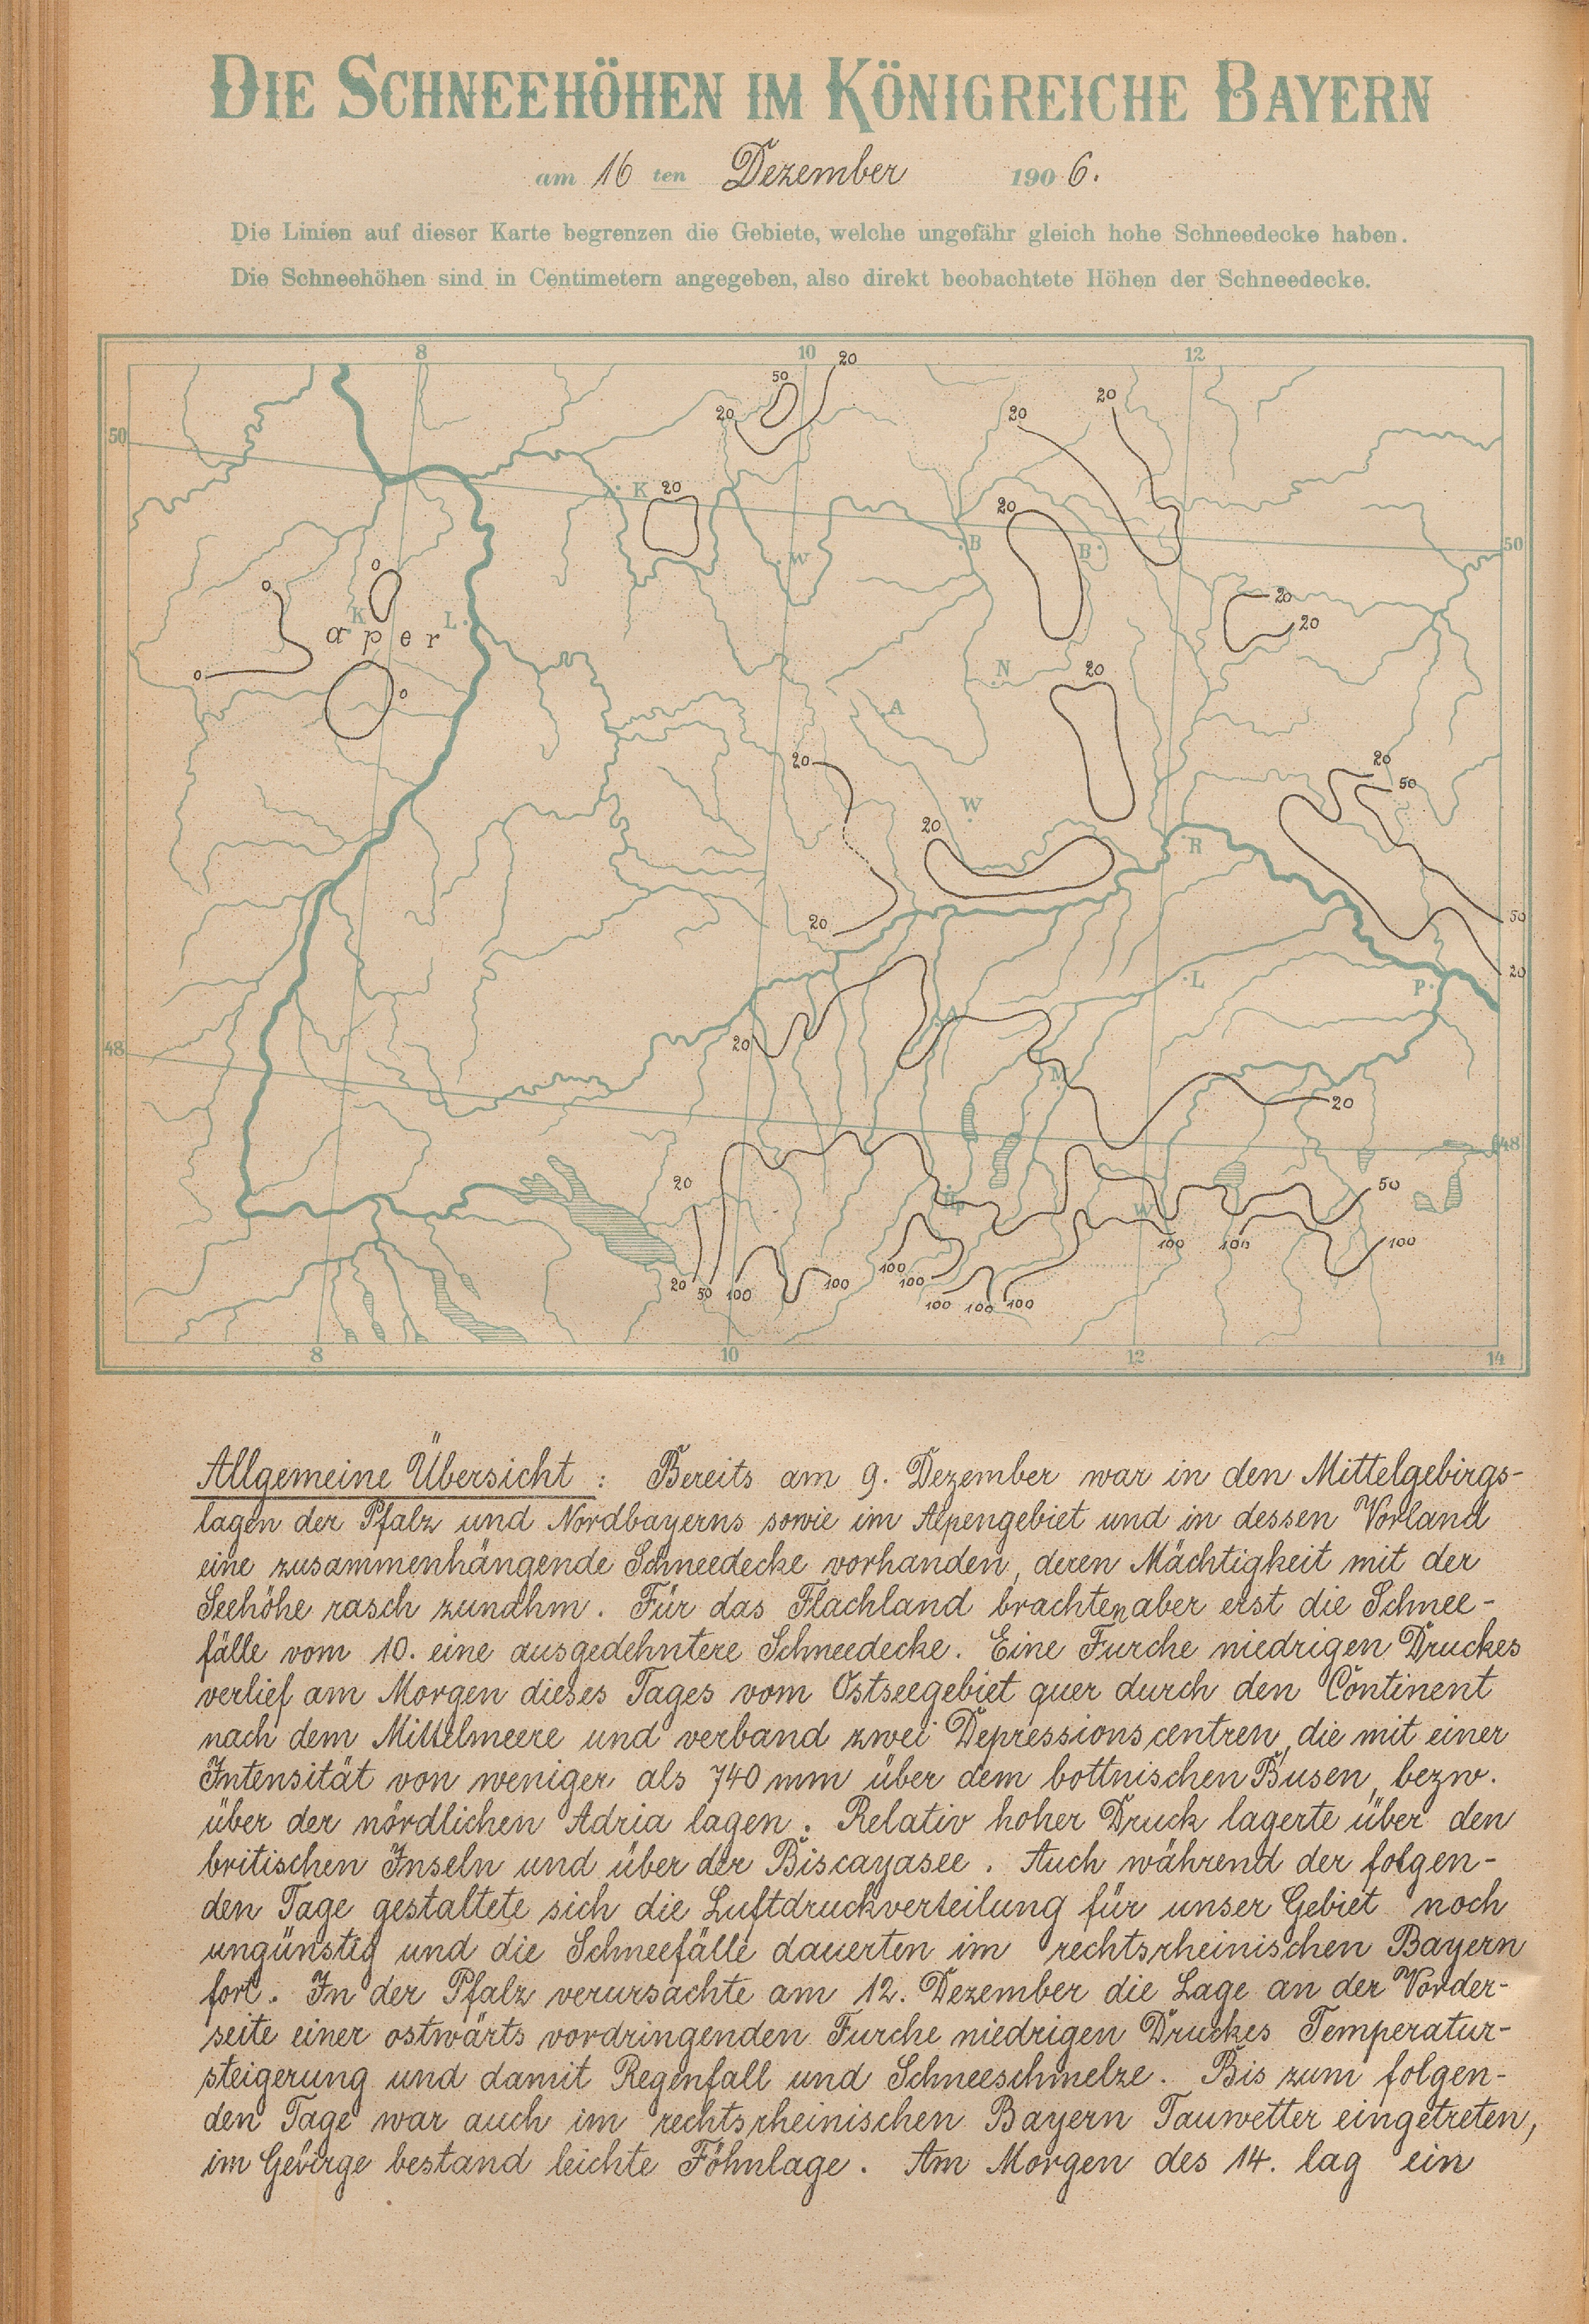 DIE SCHNEEHÖHEN IM KÖNIGREICHE BAYERN
am 16 ten Dezember 1906.
Die Linien auf dieser Karte begrenzen die Gebiete, welche ungefähr gleich hohe Schneedecke haben.
Die Schneehöhen sind in Centimetern angegeben, also direkt beobachtete Höhen der Schneedecke.
8 10 12
20
50
20 20 20
50
K 20
20
B B 50
W
0 0
20
K L
aper
20
0
N 20
0
A
20 20
50
W
20
R
20 50
20
L P
A
20
48
M
20
48
20 50
W
100 100 100
100
20 50 100 100 100
100 100 100
8 10 12 14
Allgemeine Übersicht : Bereits am 9. Dezember war in den Mittelgebirgs-
lagen der Pfalz und Nordbayerns sowie im Alpengebiet und in dessen Vorland
eine zusammenhängende Schneedecke vorhanden, deren Mächtigkeit mit der
Seehöhe rasch zunahm. Für das Flachland brachten aber erst die Schnee-
fälle vom 10. eine ausgedehntere Schneedecke. Eine Furche niedrigen Druckes
verlief am Morgen dieses Tages vom Ostseegebiet quer durch den Continent
nach dem Mittelmeere und verband zwei Depressionscentren, die mit einer
Intensität von weniger als 740 mm über dem bottnischen Busen, bezw.
über der nördlichen Adria lagen. Relativ hoher Druck lagerte über den
britischen Inseln und über der Biscayasee. Auch während der folgen-
den Tage gestaltete sich die Luftdruckverteilung für unser Gebiet noch
ungünstig und die Schneefälle dauerten im rechtsrheinischen Bayern
fort. In der Pfalz verursachte am 12. Dezember die Lage an der Vorder-
seite einer ostwärts vordringenden Furche niedrigen Druckes Temperatur-
steigerung und damit Regenfall und Schneeschmelze. Bis zum folgen-
den Tage war auch im rechtsrheinischen Bayern Tauwetter eingetreten,
im Gebirge bestand leichte Föhnlage. Am Morgen des 14. lag ein